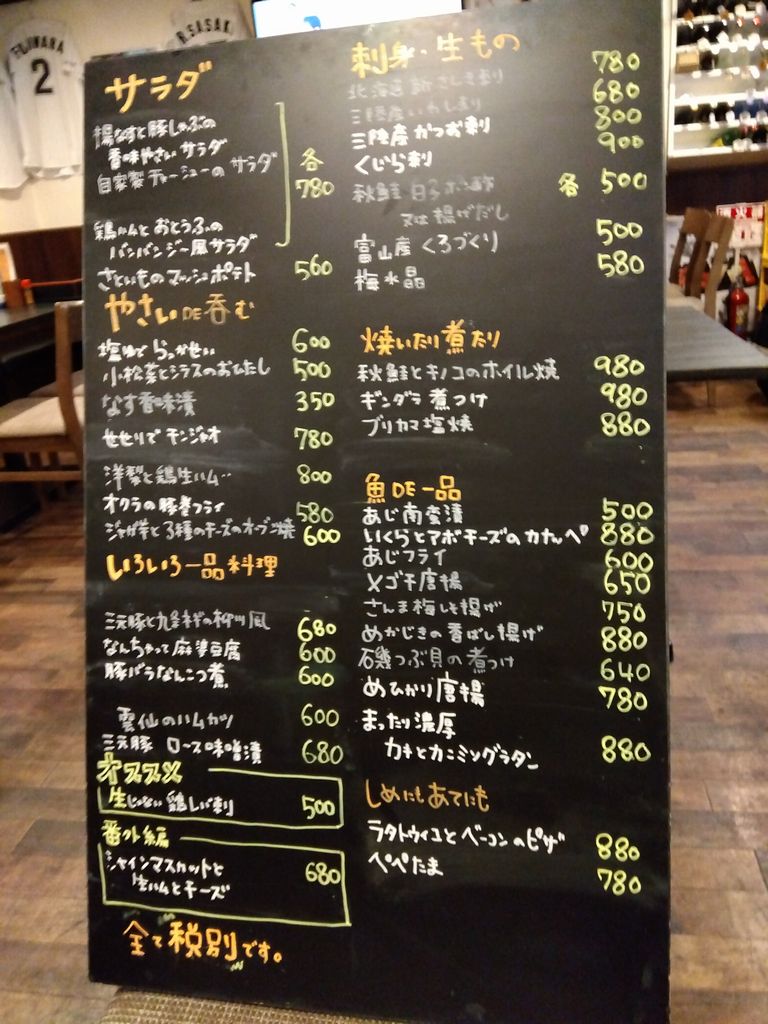 FUJIWARA
2
R.SASAKI
サラダ
揚なすと豚しゃぶの
香味やさい サラダ
自家製チャーシューの サラダ
各
780
鶏ハムと おとうふの
バンバンジー風サラダ
さといものマッシュポテト 560
やさいDE呑む
塩ゆで らっかせい 600
小松菜とシラスのおひたし 500
なす香味漬 350
せせりで チンジャオ 780
洋梨と鶏生ハム 800
オクラの豚巻フライ 580
ジャガ芋と3種のチーズのオーブン焼 600
いろいろ一品料理
三元豚と九条ネギの柳川風 680
なんちゃって麻婆豆腐 600
豚バラなんこつ煮 600
雲仙のハムカツ 600
三元豚 ロース味噌漬 680
オススメ
生じゃない 鶏レバ刺 500
番外編
シャインマスカットと
生ハムとチーズ 680
全て税別です。
刺身・生もの
北海道 新さんま刺 780
三陸産いわし刺 680
三陸産かつお刺 800
くじら刺 900
秋鮭 白子ポン酢 各 500
又は揚げだし
富山産 くろづくり 500
梅水晶 580
焼いたり煮たり
秋鮭とキノコのホイル焼 980
ギンダラ煮つけ 980
ブリカマ塩焼 880
魚DE一品
あじ南蛮漬 500
いくらとアボチーズのカナッペ 880
あじフライ 600
メゴチ唐揚 650
さんま梅しそ揚げ 750
めかじきの香ばし揚げ 880
磯つぶ貝の煮つけ 640
めひかり唐揚 780
まったり濃厚
カキとカニミソグラタン 880
しめにもあてにも
ラタトゥイユとベーコンのピザ 880
ペペたま 780